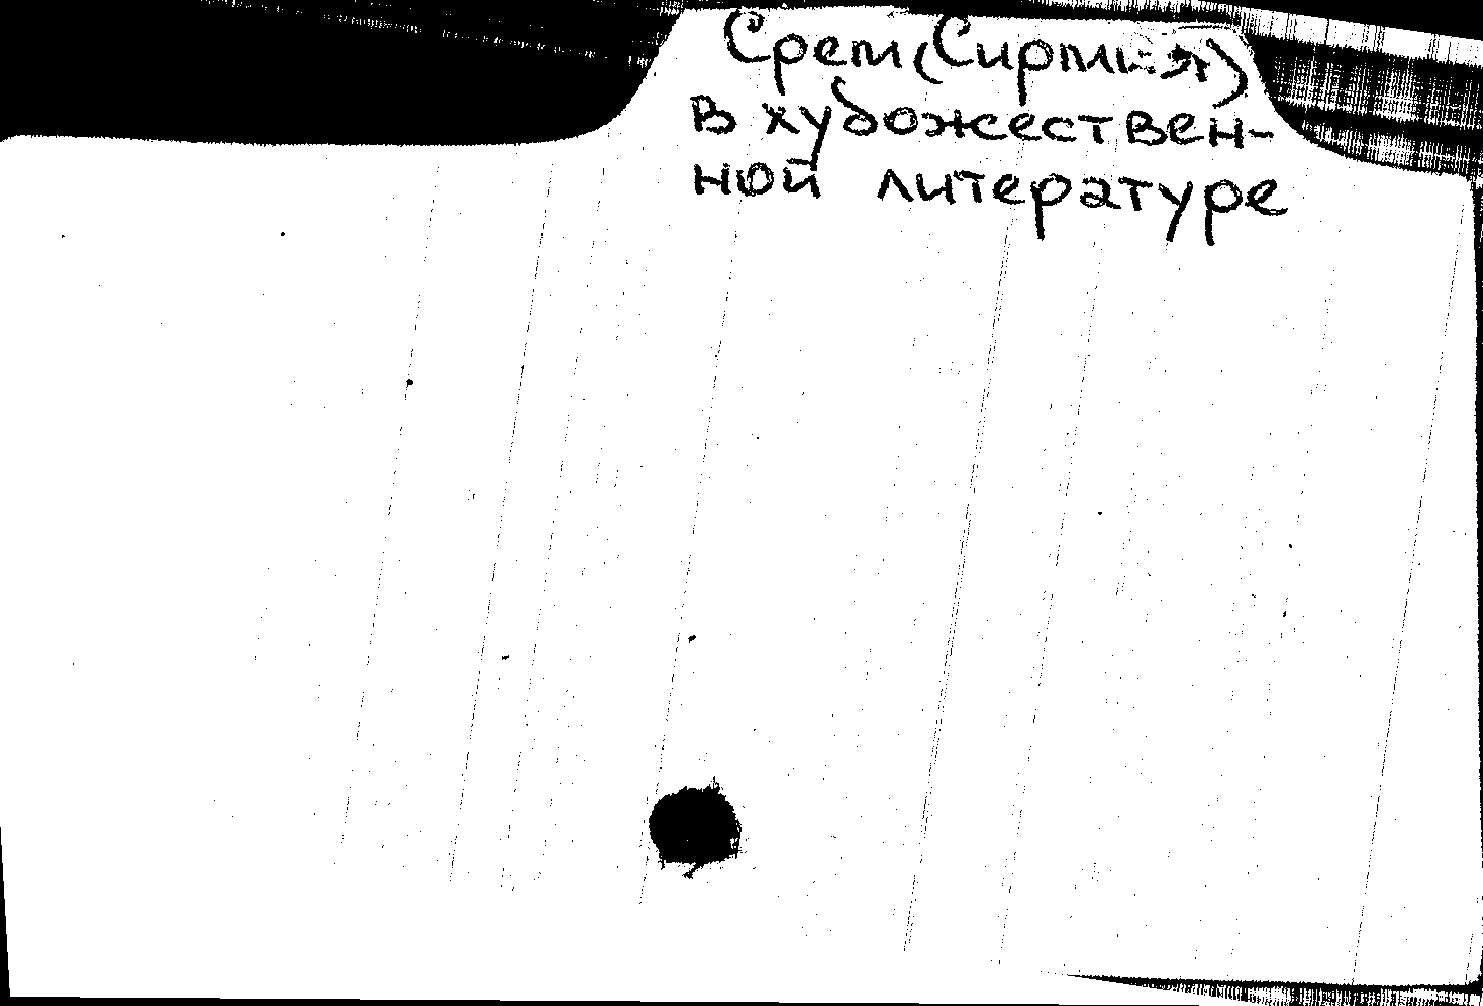 Срем (Сирмия)
в художествен-
ной литературе